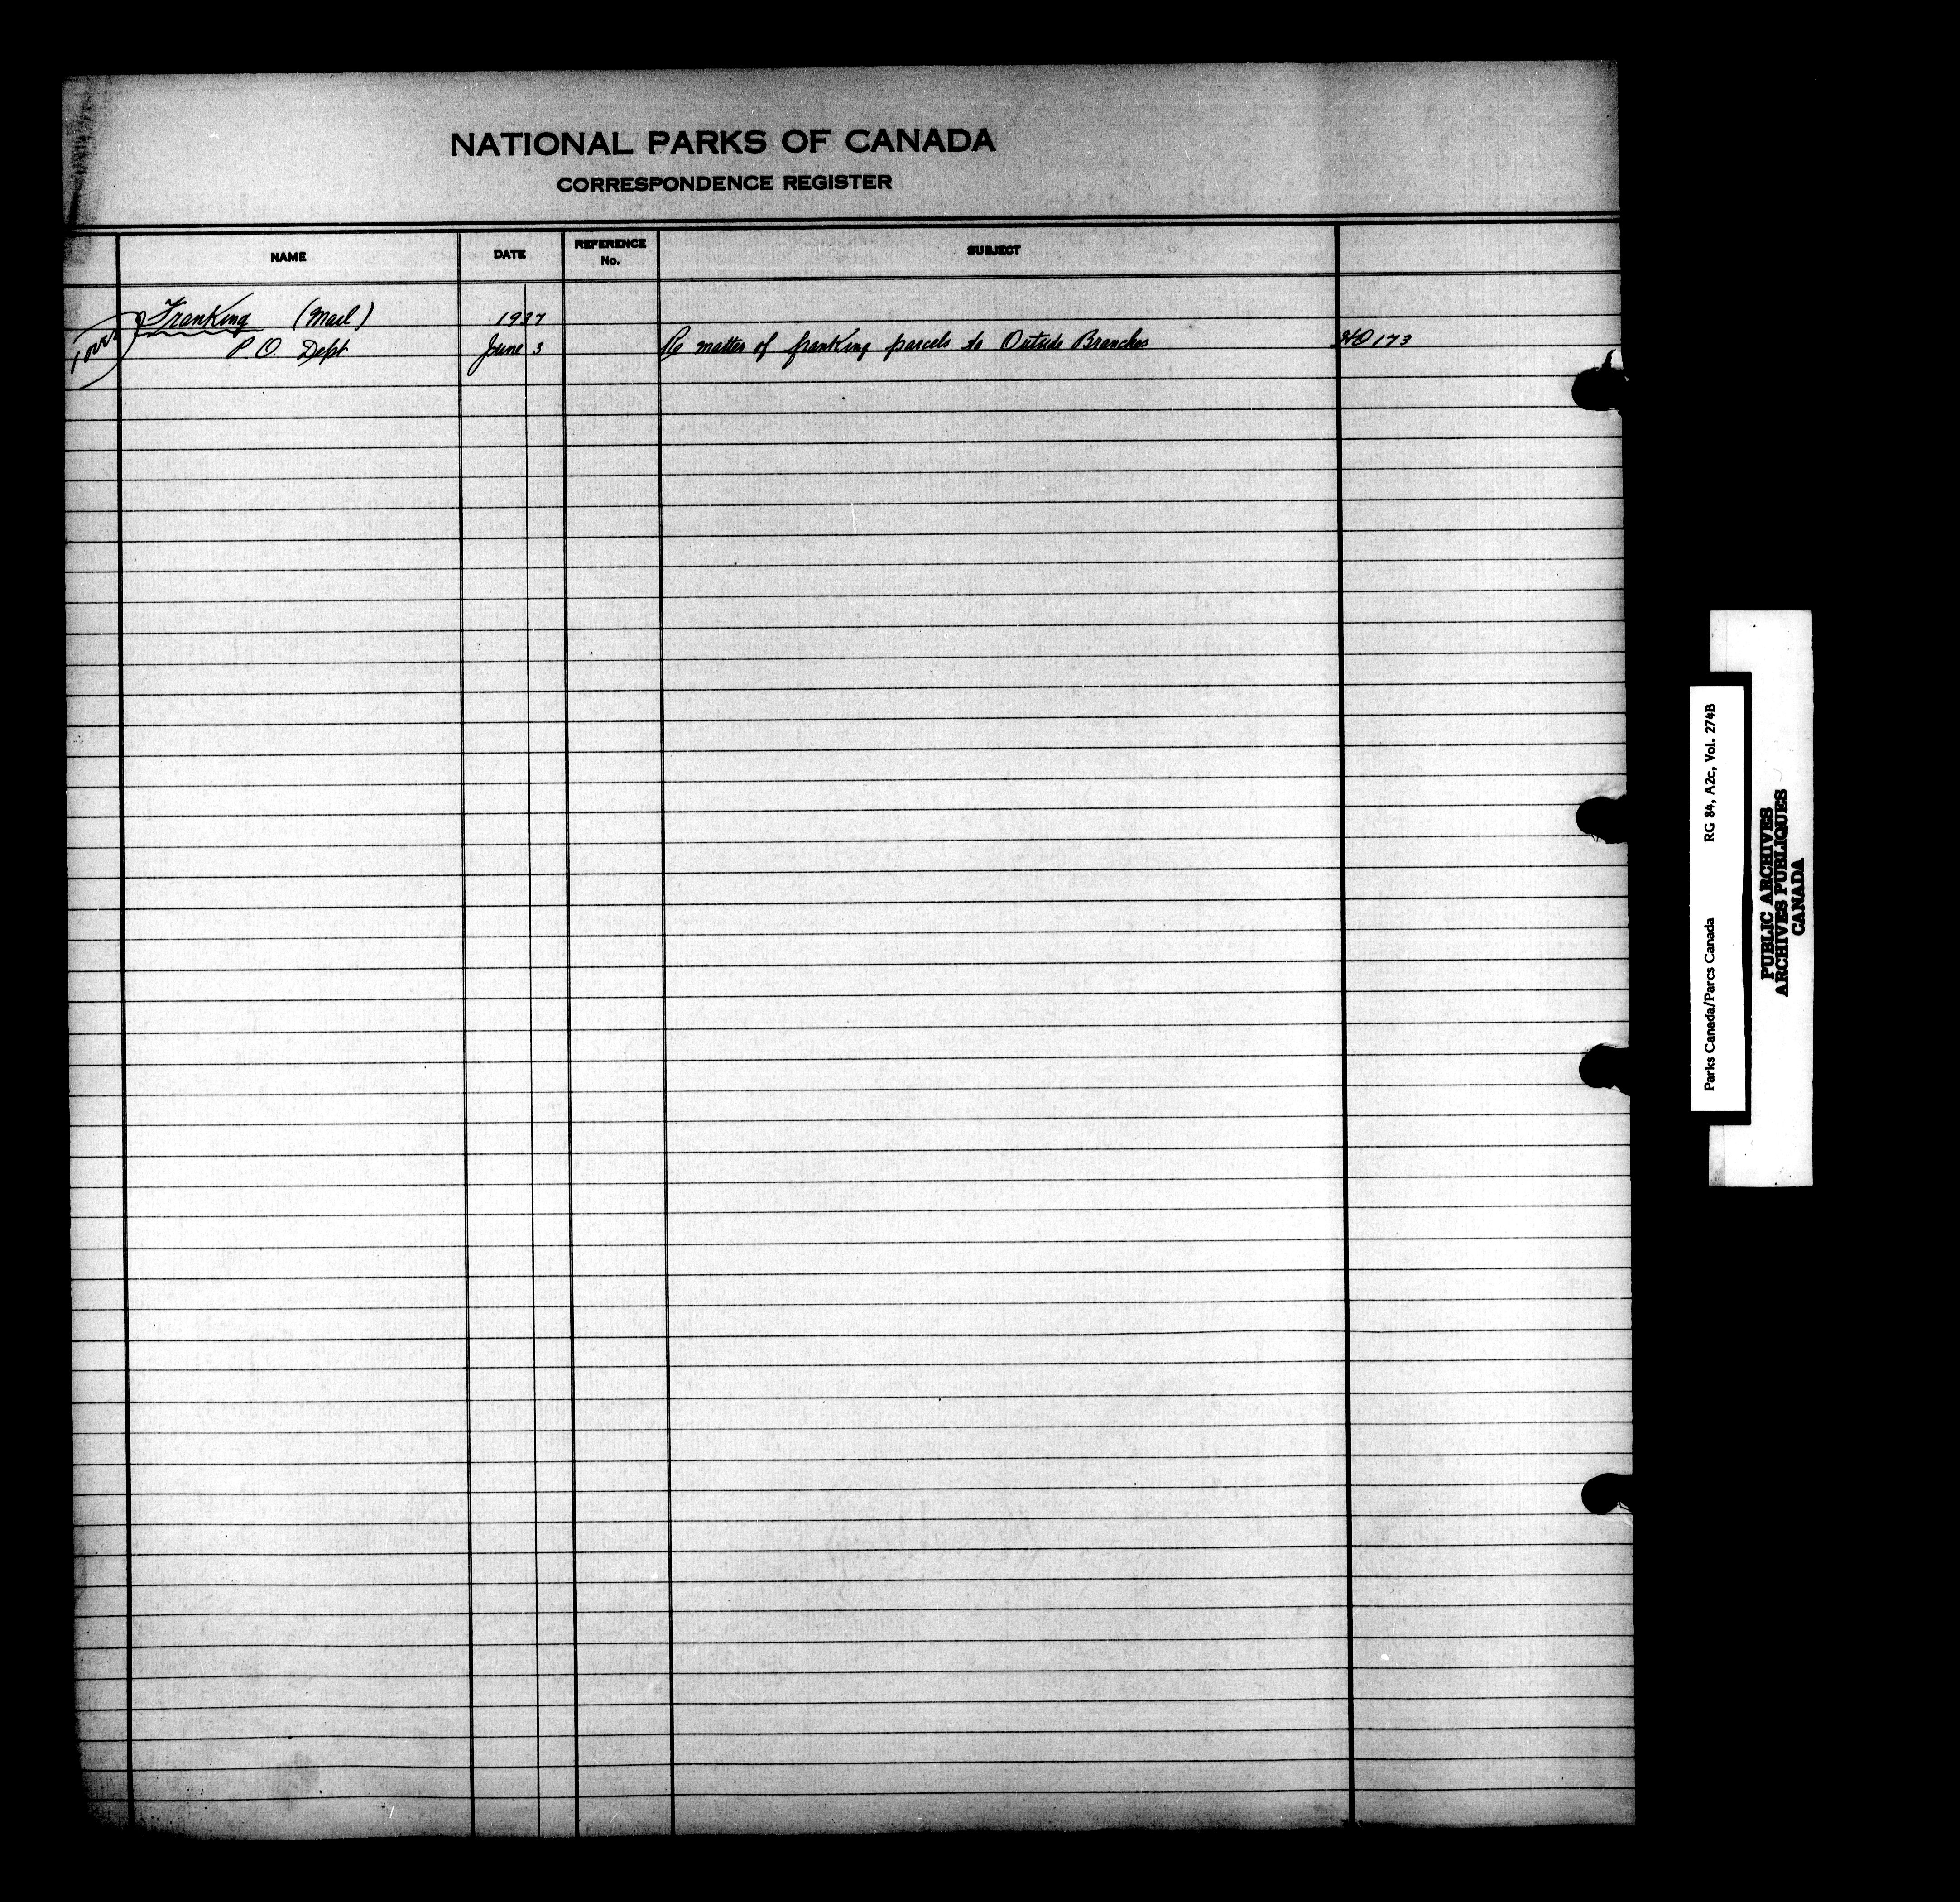 NATIONAL PARKS OF CANADA
CORRESPONDENCE REGISTER
NAME DATE REFERENCE No. SUBJECT
Franking (Mail) 1937
P.O. Dept June 3 Re matter of franking parcels to Outside Branches HO 173
Parks Canada/Parcs Canada RG 84, A2c, Vol. 274B
PUBLIC ARCHIVES
ARCHIVES PUBLIQUES
CANADA